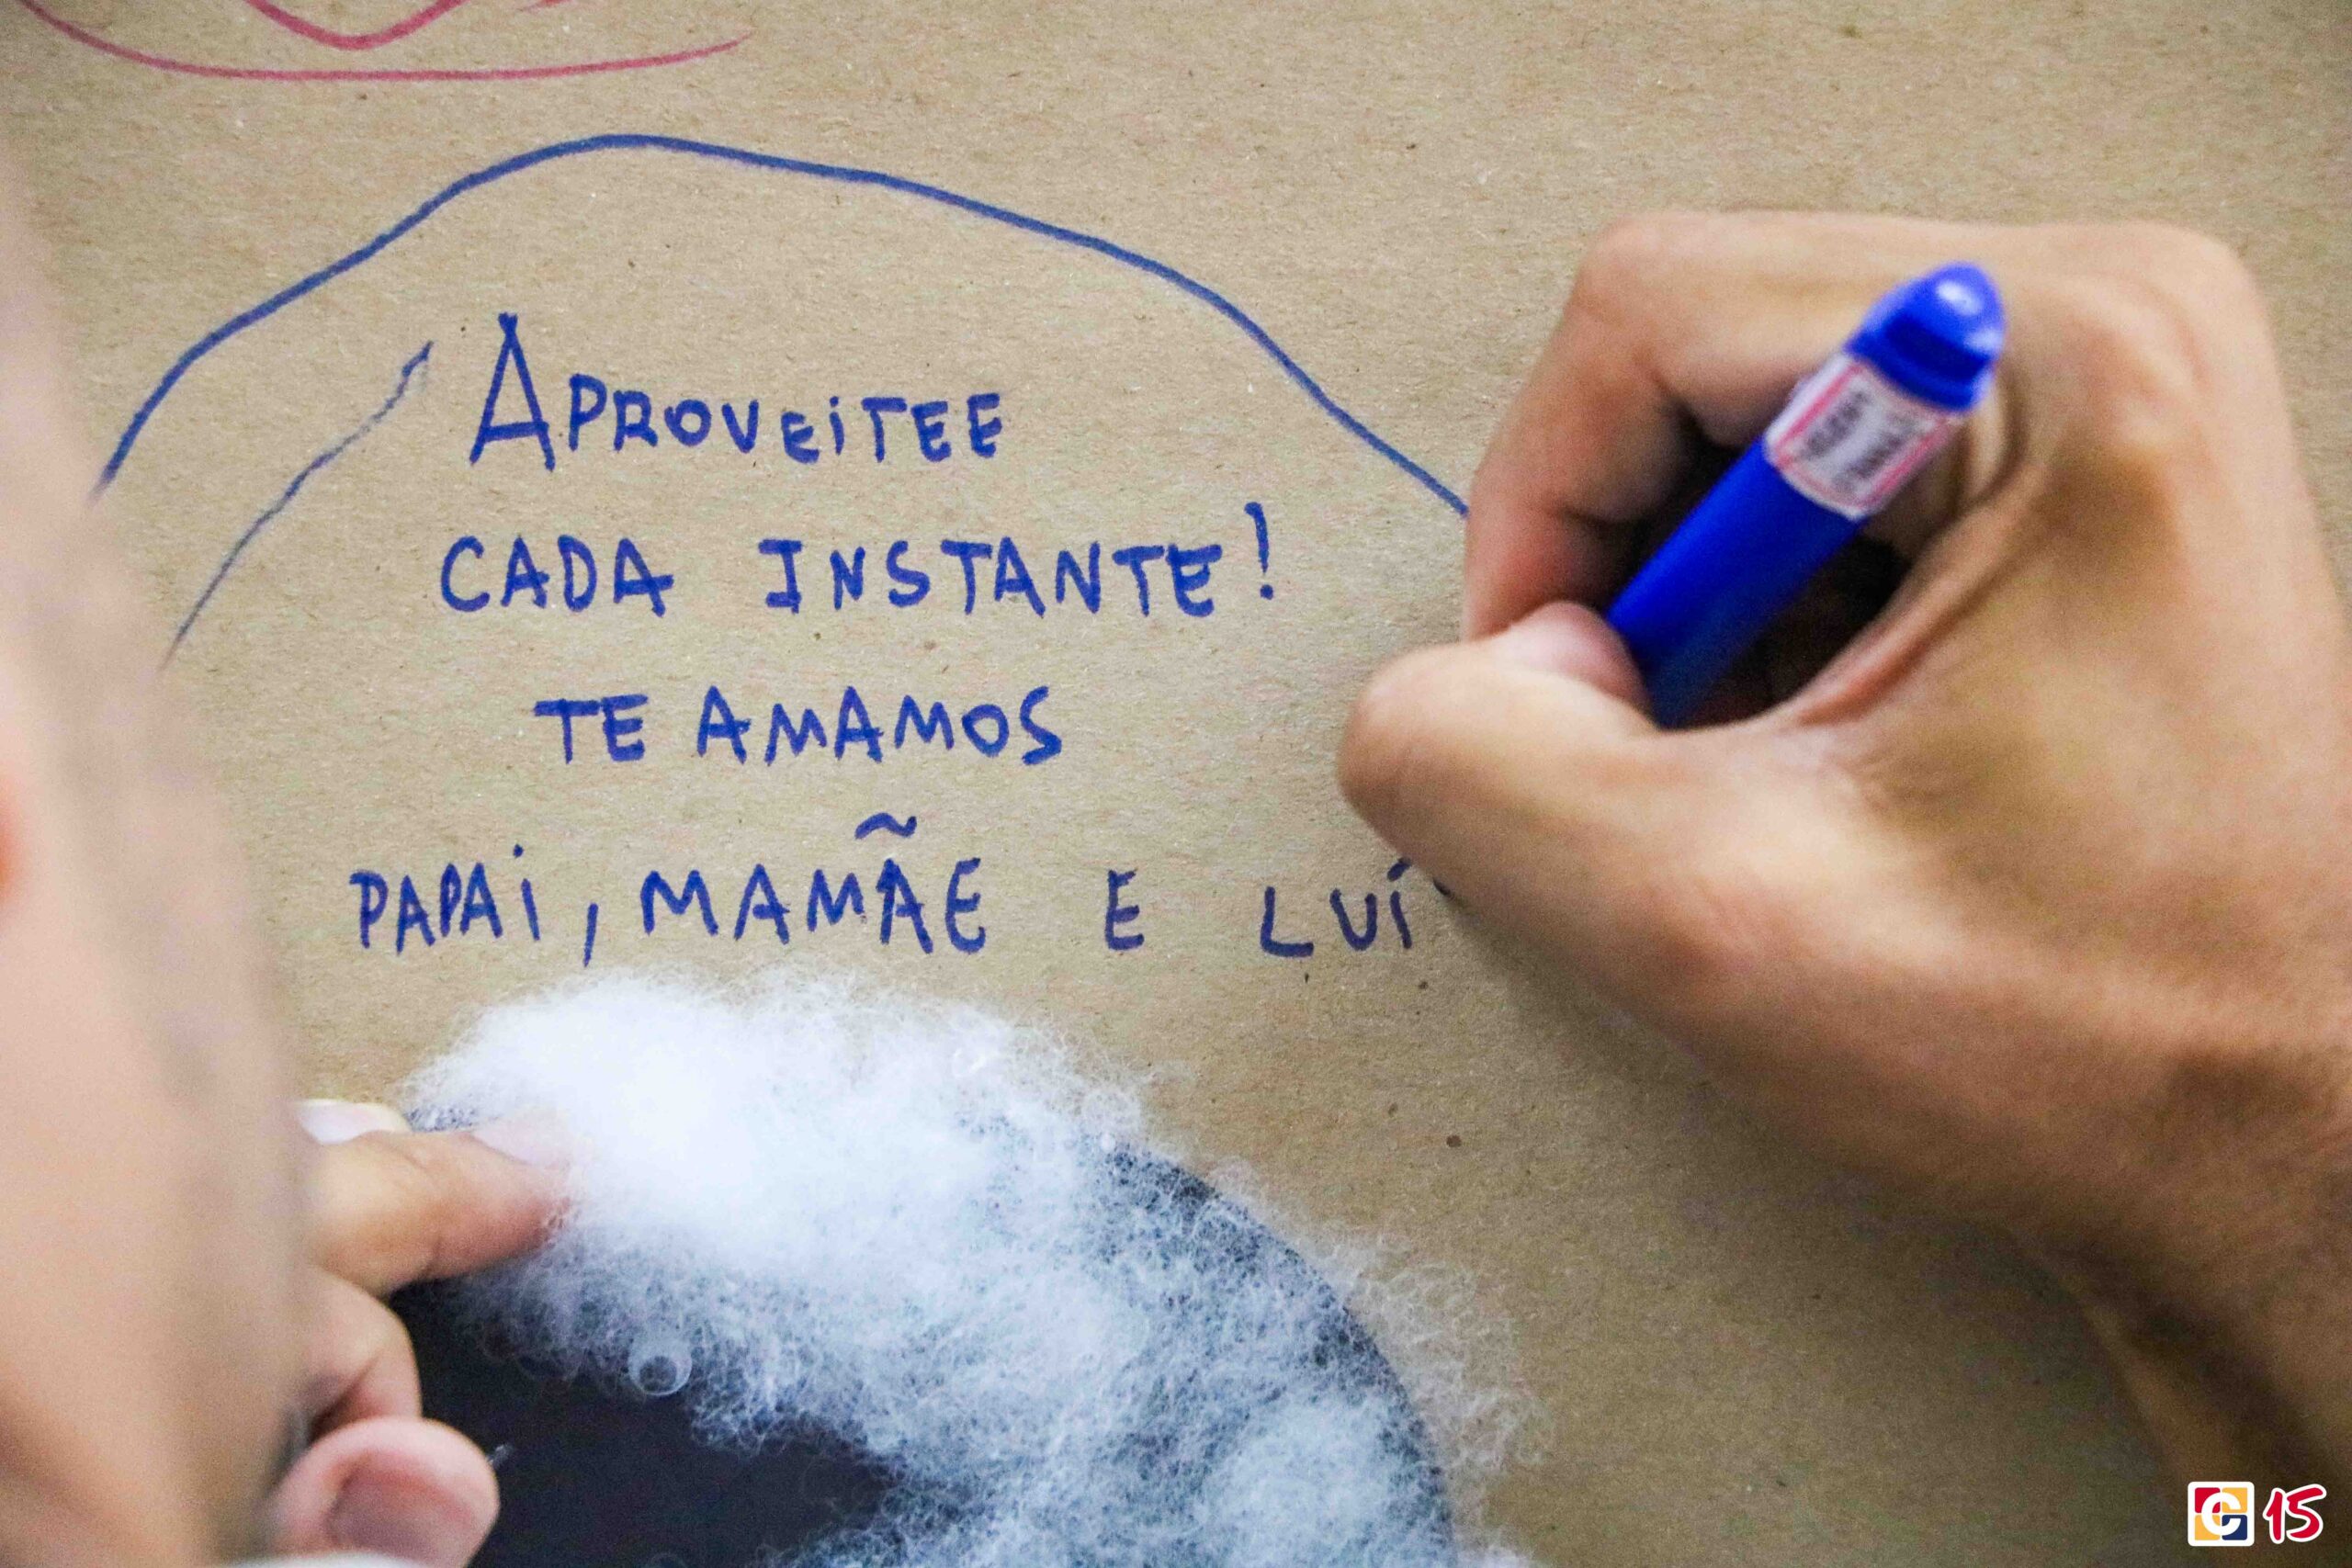 APROVEiTEE
CADA INSTANTE!
TE AMAMOS
PAPAi, MAMÃE E LUÍ
15